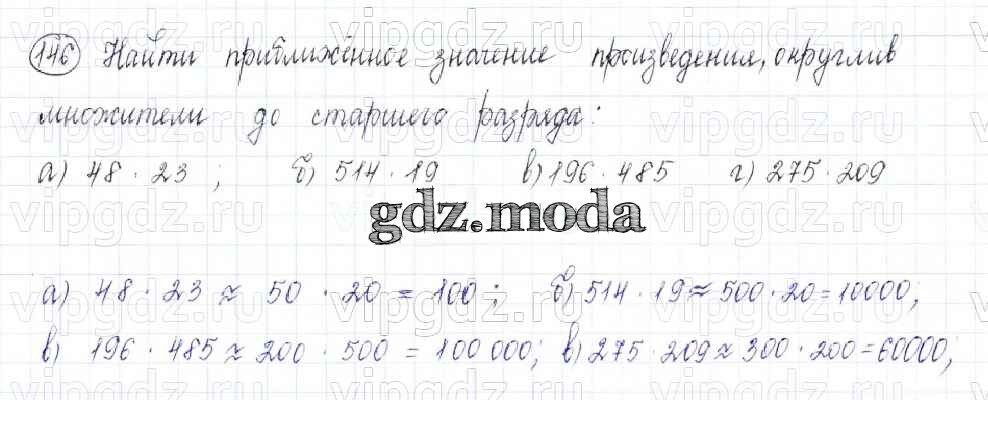 146 Найти приближённое значение произведения, округлив
множители до старшего разряда:
а) 48 · 23 ; б) 514 · 19 в) 196 · 485 г) 275 · 209
gdz.moda
а) 48 · 23 ≈ 50 · 20 = 100 ; б) 514 · 19 ≈ 500 · 20 = 10000;
в) 196 · 485 ≈ 200 · 500 = 100 000; в) 275 · 209 ≈ 300 · 200 = 60000;
vipgdz.ru